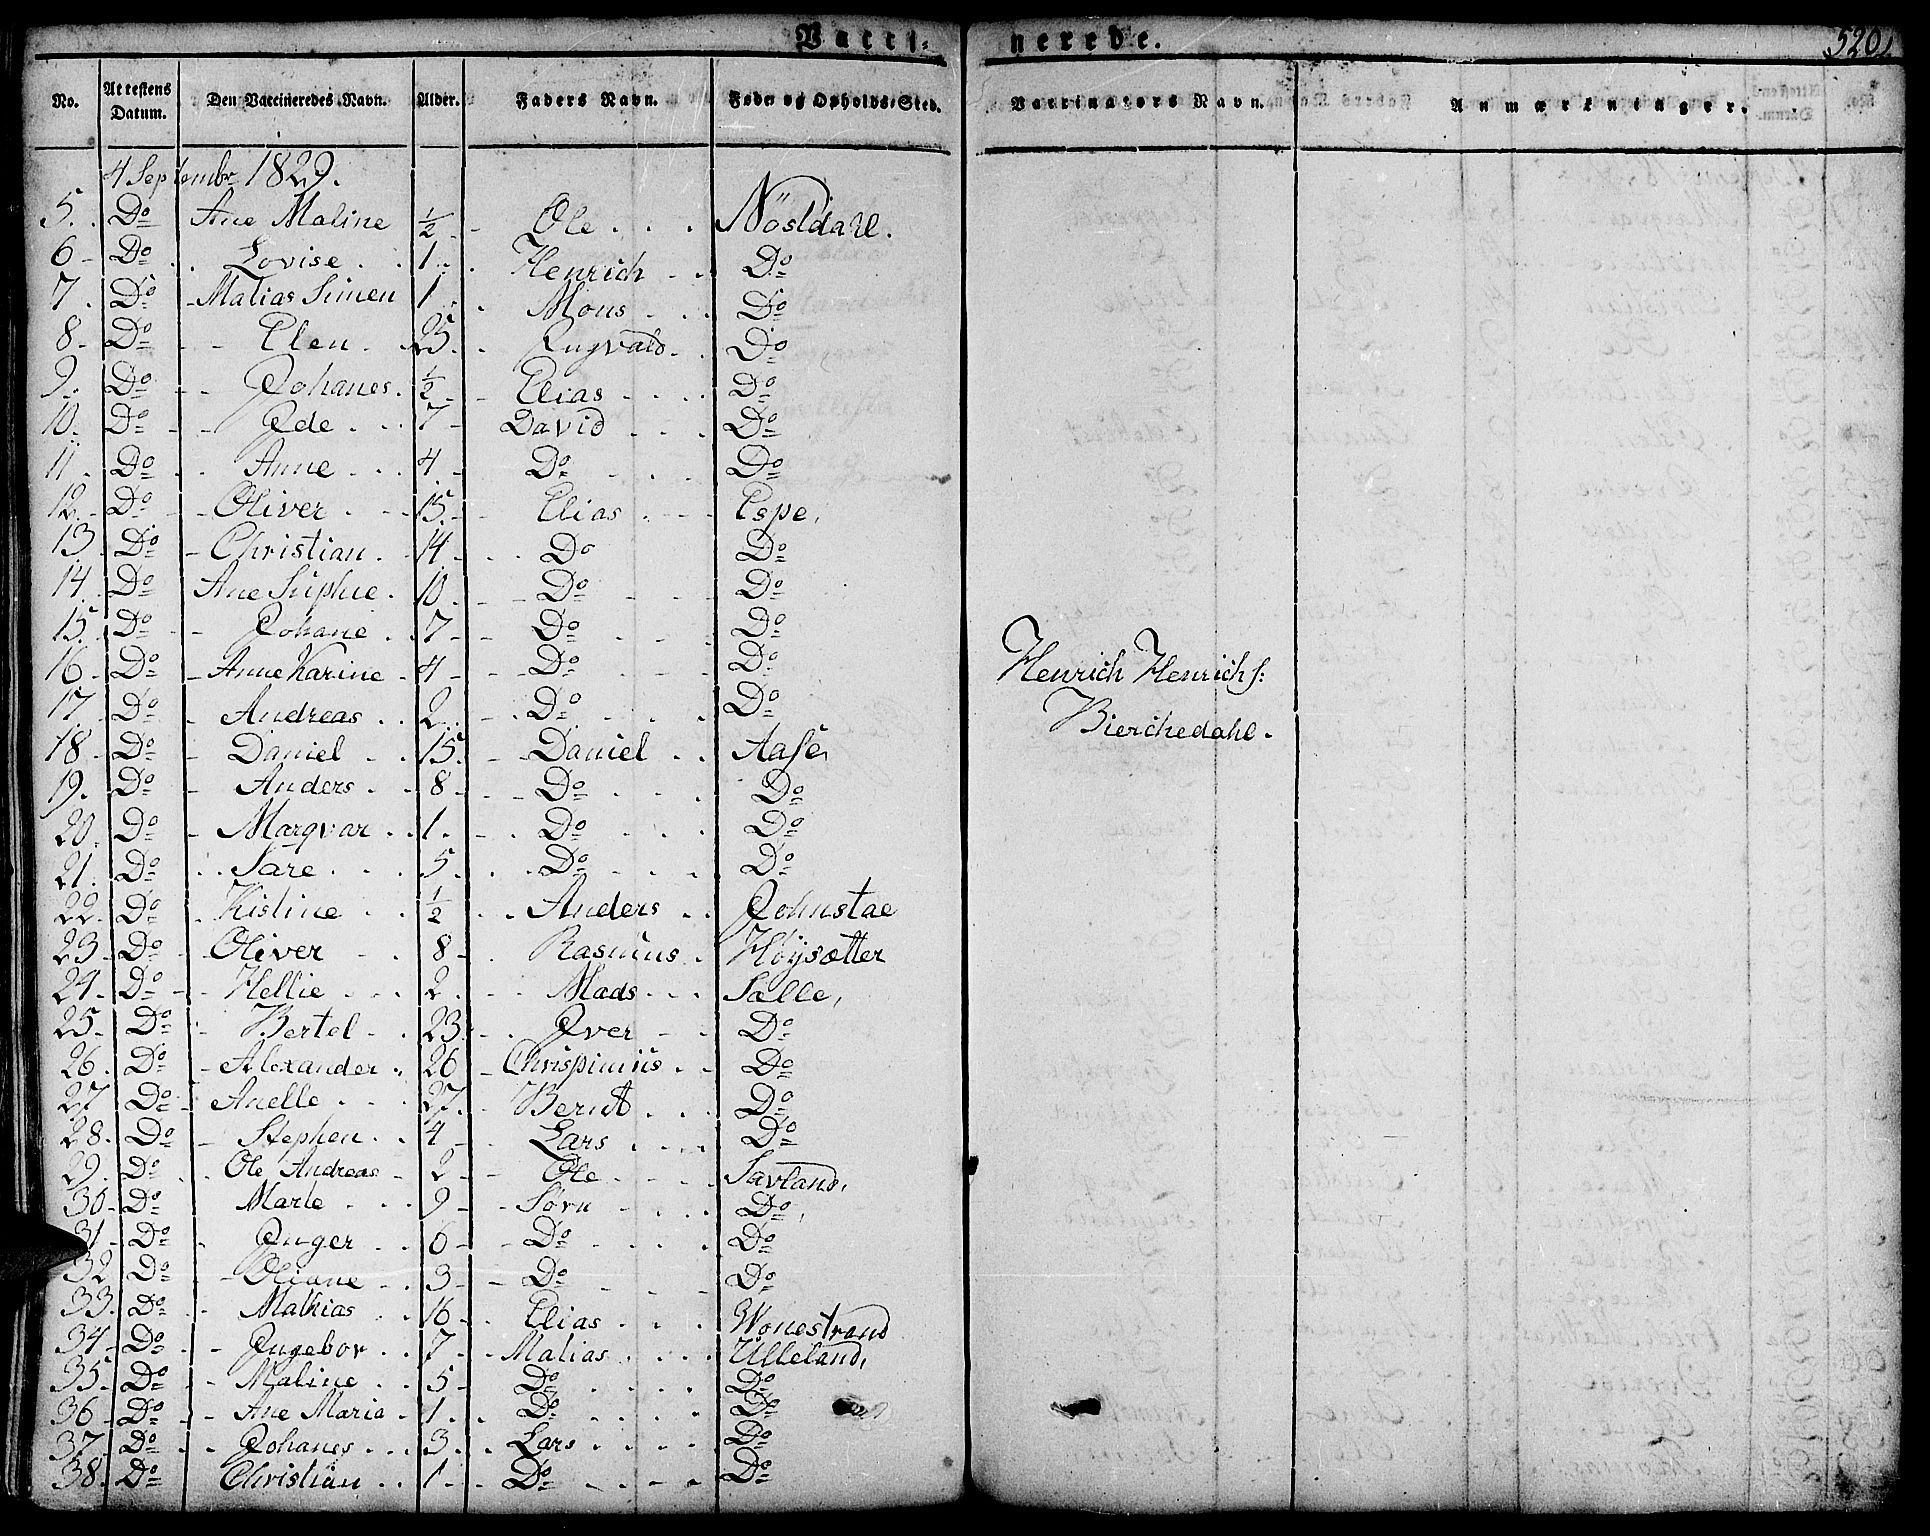 Vacci-
nerede.
520
No. Attestens Datum. Den Vaccineredes Navn. Alder. Faders Navn. Føde og Opholds-Sted. Vaccinators Navn. Anmærkninger.
4 Septembr 1829.
5. Do Ane Maline ½ Ole Nösldahl.
6 Do Lovise 1. Henrich Do
7. Do Matias Simen 1 Mons Do
8 Do Elen 25 Engvald Do
9. Do Johanes. ½ Elias Do
10. Do Ede 7 David Do
11 Do Anne 4 Do Do
12. Do Oliver 15 Elias Espe,
13. Do Christian. 14 Do Do
14. Do Ane Suphie. 10 Do Do
15. Do Johane 7 Do Do
16 Do Anne Karine 4 Do Do
17. Do Andreas 2 Do Do
18. Do Daniel 15 Daniel Aase,
19. Do Anders 8 Do Do
20. Do Marqvar 1. Do Do
21. Do Sare 5 Do Do
22. Do Kistine ½ Anders Johnstae
23. Do Oliver 8 Rasmus Höysætter
24. Do Hellie 2 Mads Salle,
25. Do Bertel 23. Iver Do
26. Do Alexander 26 Chrispinius Do
27 Do Anelle 27. Bernt Do
28. Do Stephen. 4 Lars Do
29. Do Ole Andreas 2 Ole Savland,
30. Do Marte 9 Sørn Do,
31 Do Inger 6 Do Do
32 Do Oliane 3 Do Do
33. Do Mathias 16 Elias Wonestrand
34 Do Ingebor 7 Malias Ulleland,
35. Do Maline 5 Do Do
36 Do Ane Maria 1. Do Do
37. Do Johanes 3 Lars Do
38. Do Christian 1 Do Do
Henrich Henrichs:
Bierchedahl.